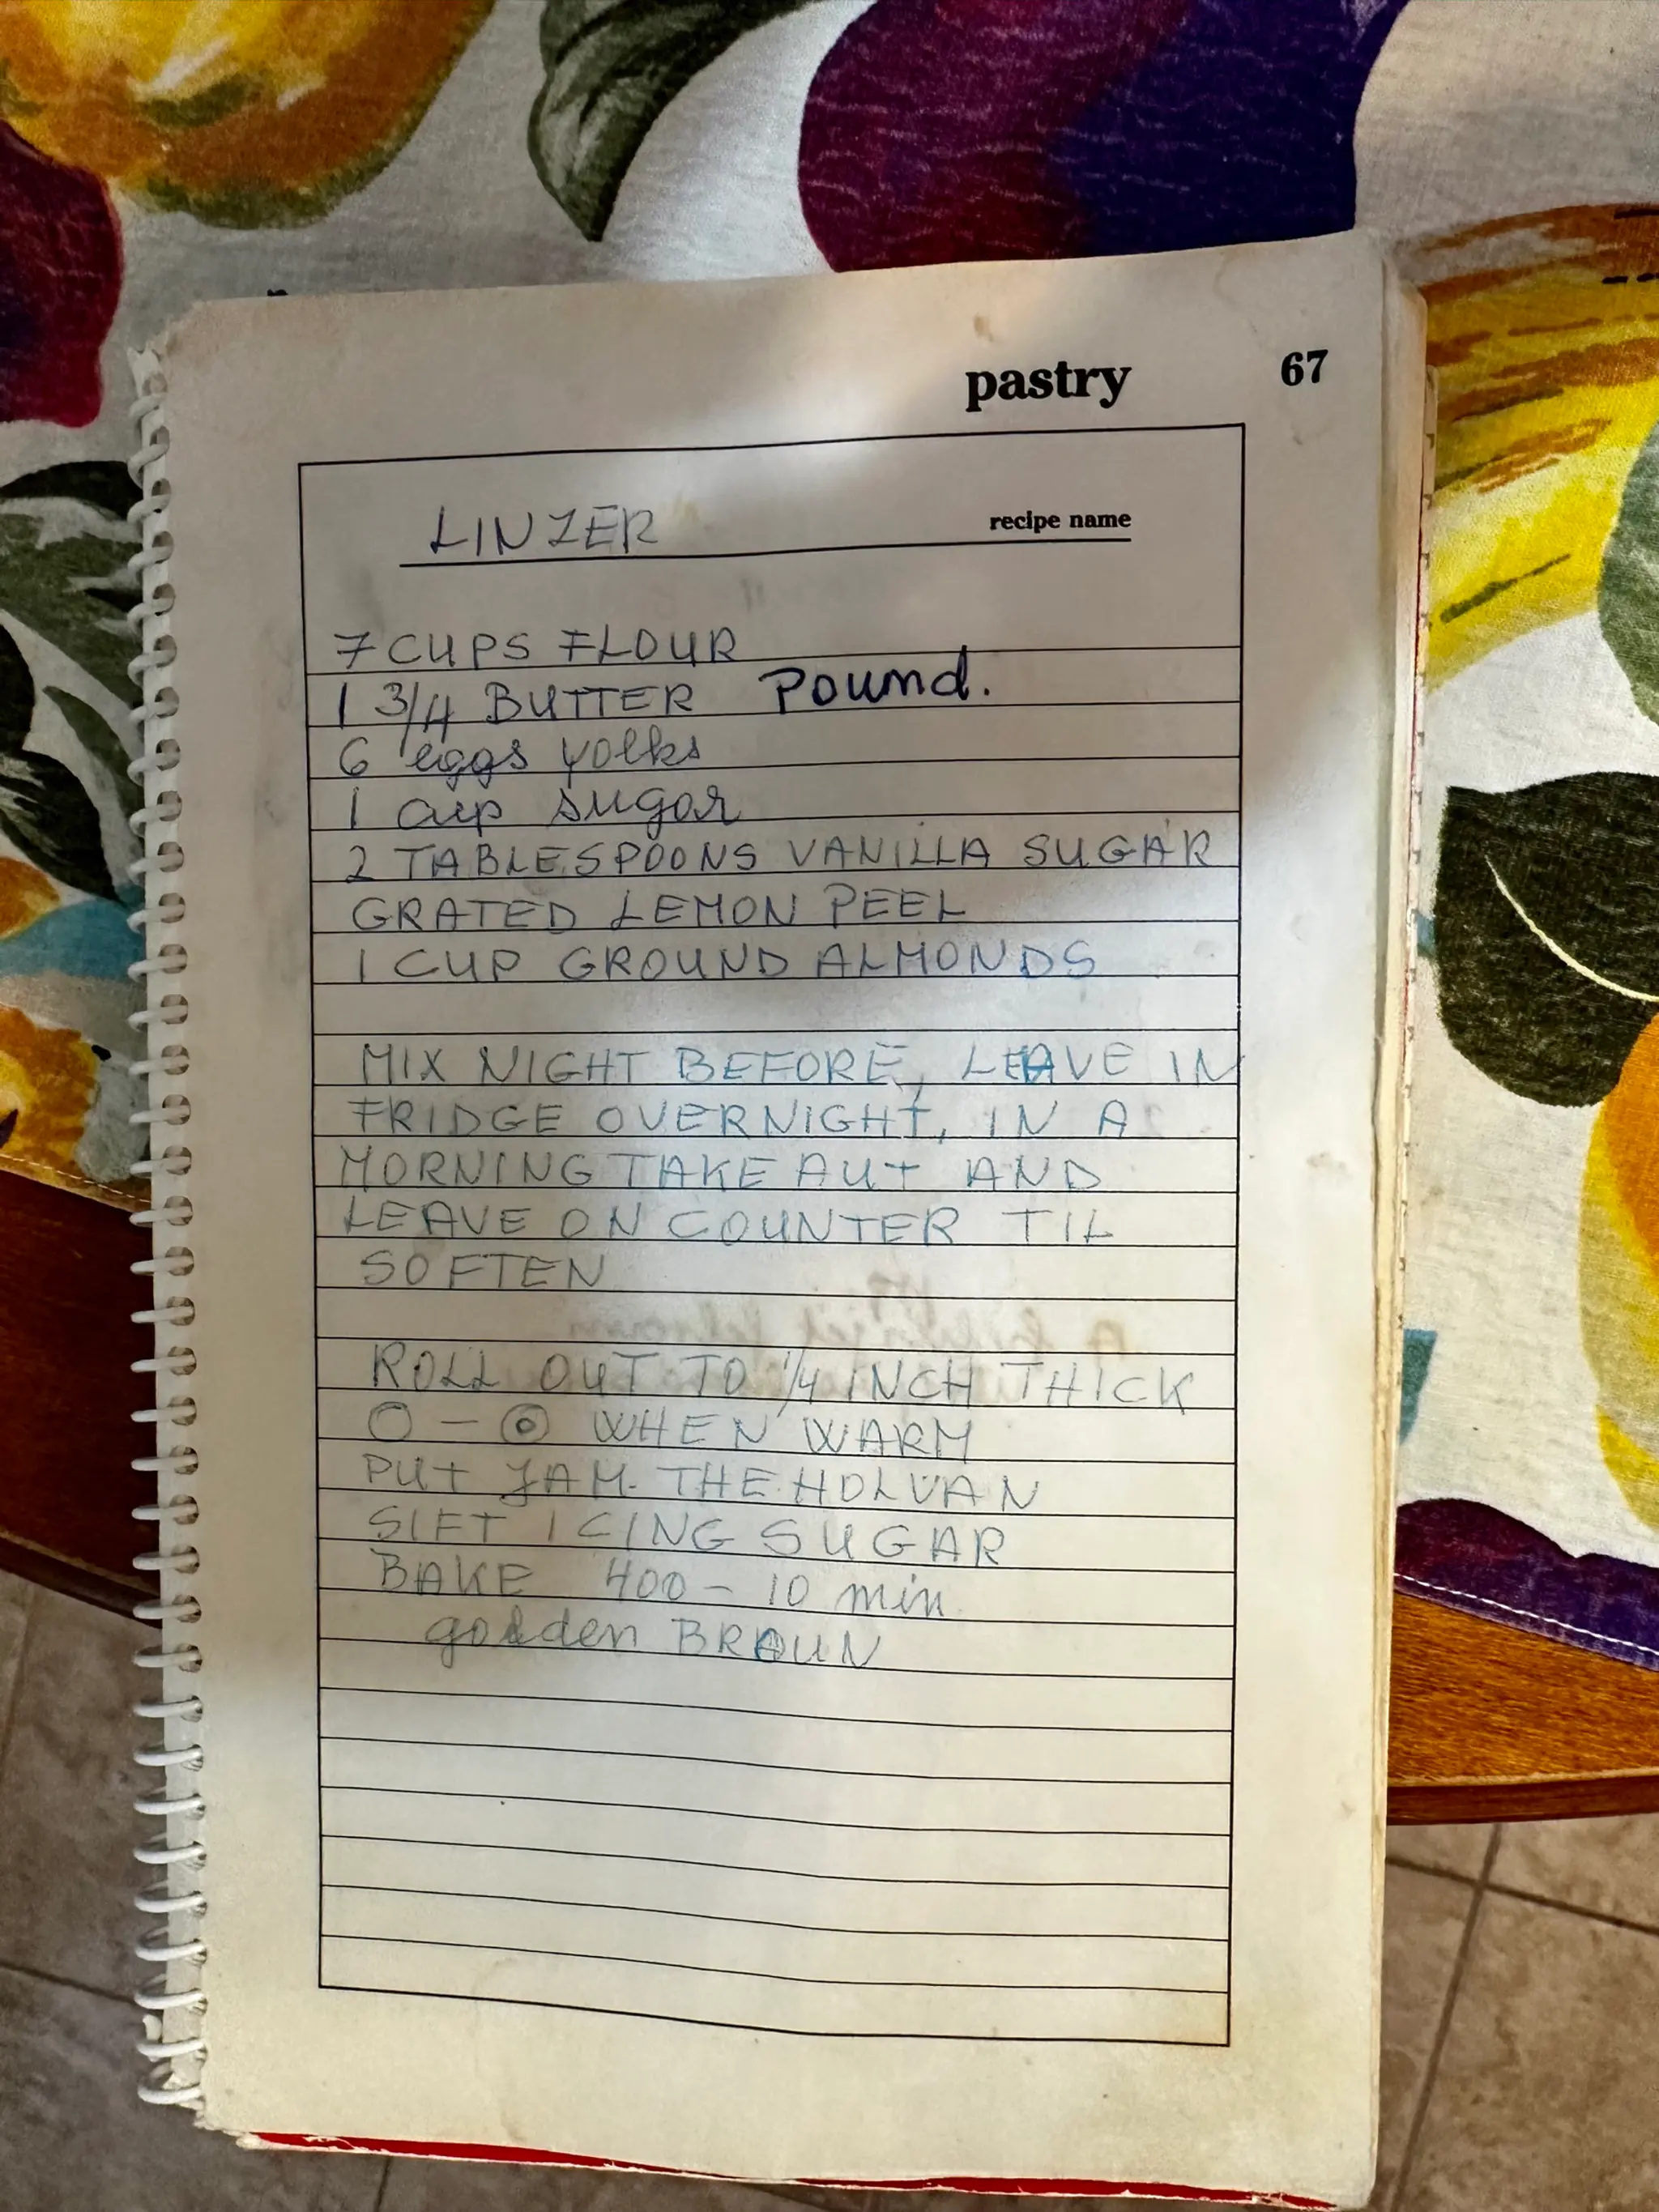 pastry 67
LINZER recipe name
7 CUPS FLOUR
1 3/4 BUTTER Pound.
6 eggs yolks
1 cup sugar
2 TABLESPOONS VANILLA SUGAR
GRATED LEMON PEEL
1 CUP GROUND ALMONDS
MIX NIGHT BEFORE, LEAVE IN
FRIDGE OVERNIGHT, IN A
MORNING TAKE AUT AND
LEAVE ON COUNTER TIL
SOFTEN
ROLL OUT TO 1/4 INCH THICK
O - ⊙ WHEN WARM
PUT JAM. THE HOLVAN
SIFT ICING SUGAR
BAKE 400 - 10 min
golden BRAUN